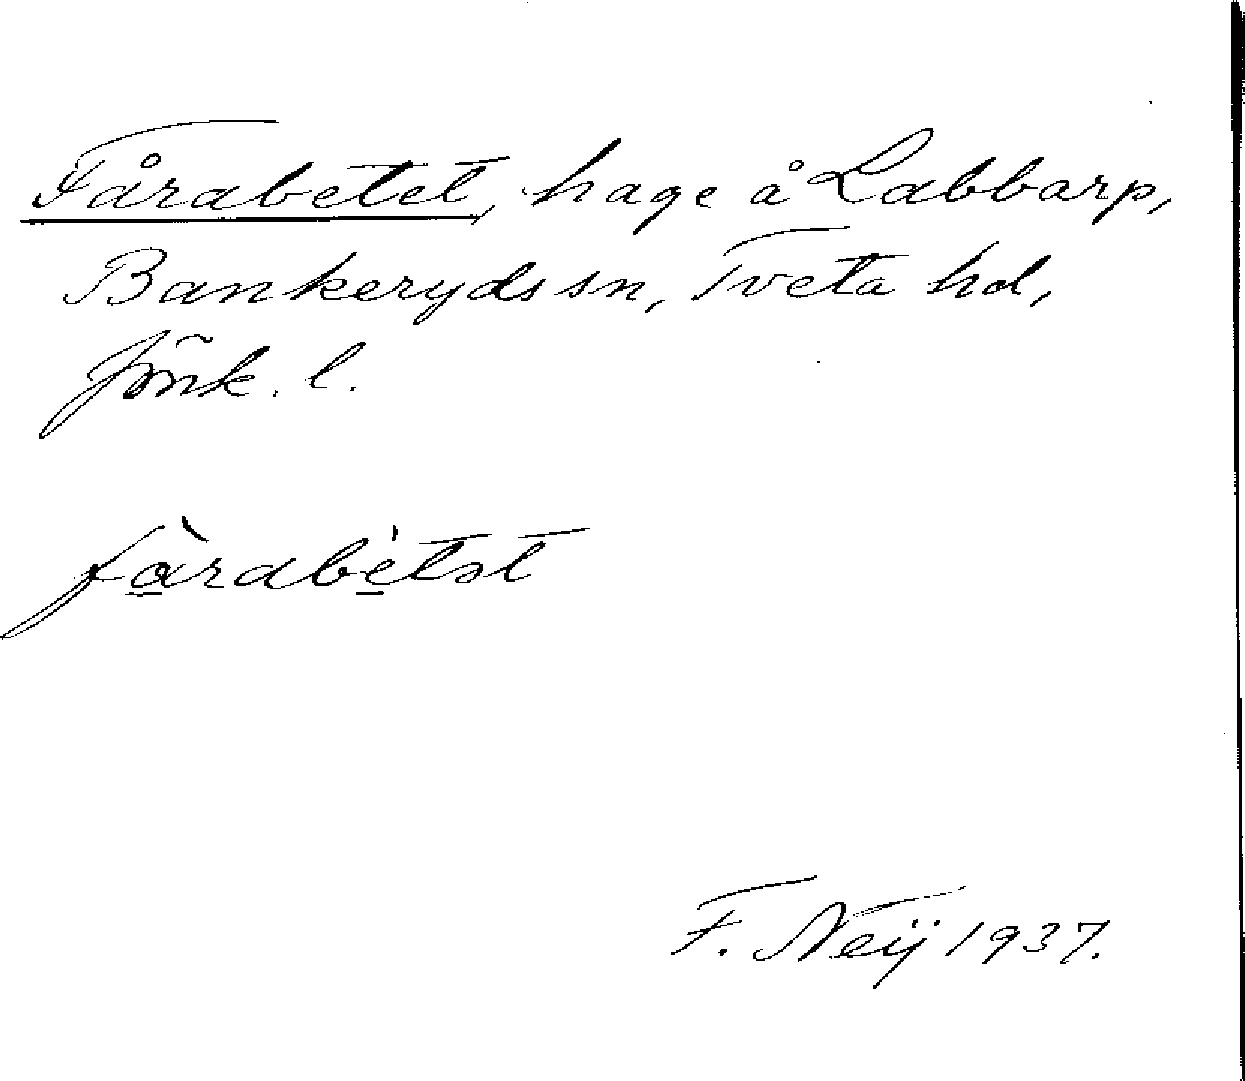 Fårabetet, hage å Labbarp,
Bankeryds sn, Tveta hd,
Jönk. l.
F. Neij 1937.